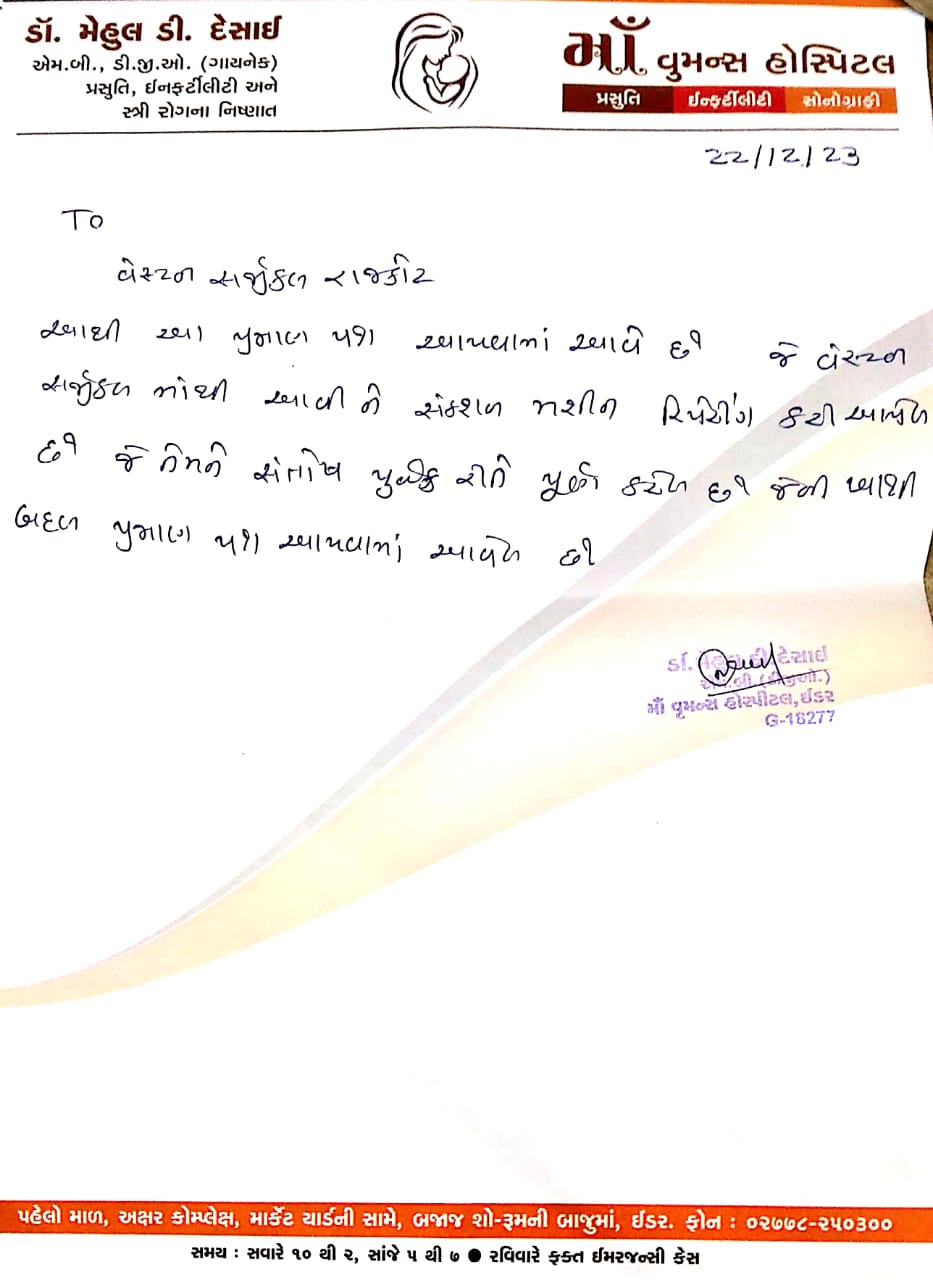 ડૉ. મેહુલ ડી. દેસાઈ
એમ.બી., ડી.જી.ઓ. (ગાયનેક)
પ્રસુતિ, ઈનફર્ટીલીટી અને
સ્ત્રી રોગના નિષ્ણાત
માઁ વુમન્સ હોસ્પિટલ
પ્રસુતિ ઈન્ફર્ટીલીટી સોનોગ્રાફી
22/12/23
TO
વેસ્ટન સર્જીકલ રાજકોટ
આથી આ પ્રમાણ પત્ર આપવામાં આવે છે જે વેસ્ટન
સર્જીકલ માંથી આવી ને સંકશન મશીન રિપેરીંગ કરી આપેલ
છે જે તેમને સંતોષ પુર્વક રીતે પુર્ણ કરેલ છે જેની ખાત્રી
બદલ પ્રમાણ પત્ર આપવામાં આવેલ છે
ડૉ. દેસાઈ
એમ.બી.(ડીજીઓ.)
માઁ વૂમન્સ હોસ્પીટલ,ઈડર
G-18277
પહેલો માળ, અક્ષર કોમ્પ્લેક્ષ, માર્કેટ યાર્ડની સામે, બજાજ શો-રૂમની બાજુમાં, ઈડર. ફોન : ૦૨૭૭૮-૨૫૦૩૦૦
સમય : સવારે ૧૦ થી ૨, સાંજે ૫ થી ૭ ● રવિવારે ફક્ત ઈમરજન્સી કેસ